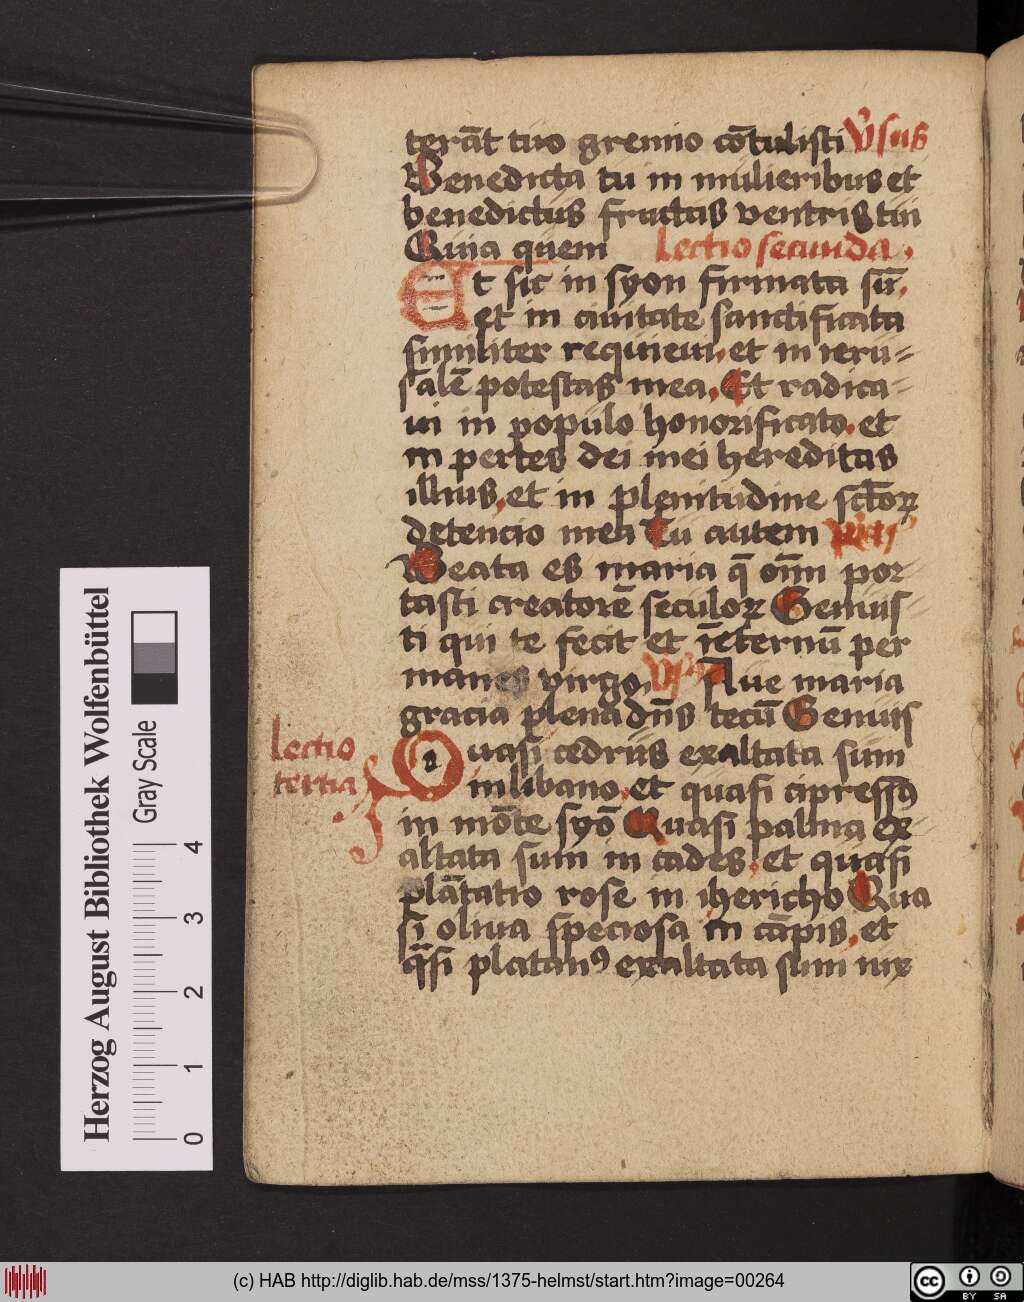 terāt tuo gremio cōtulisti v̄sus
Benedicta tu in mulieribus et
benedictus fructus ventris tui
Quia quem Lectio secunda.
Et sic in syon firmata sū.
et in ciuitate sanctificata
similiter requieui. et in ieru=
salē potestas mea. Et radica=
ui in populo honorificato. et
in pertes dei mei hereditas
illius. et in plenitudine sctōꝝ
detencio mea Tu autem
Beata es maria q̄ om̄ por-
tasti creatorē seculoꝝ Genuis-
ti qui te fecit et ī eternū per
manes virgo. Aue maria
gracia plena dn̄s tecū Genuis
Lectio
tertia
Quasi cedrus exaltata sum
in libano. et quasi cipressꝰ
in mōte syō Quasi palma ex
altata sum in cades. et quasi
plātatio rose in ihericho Qua
si oliua speciosa in cāpis. et
q̄si platanꝰ exaltata sum iux
Herzog August Bibliothek Wolfenbüttel
Gray Scale
0 1 2 3 4
(c) HAB http://diglib.hab.de/mss/1375-helmst/start.htm?image=00264
cc BY SA